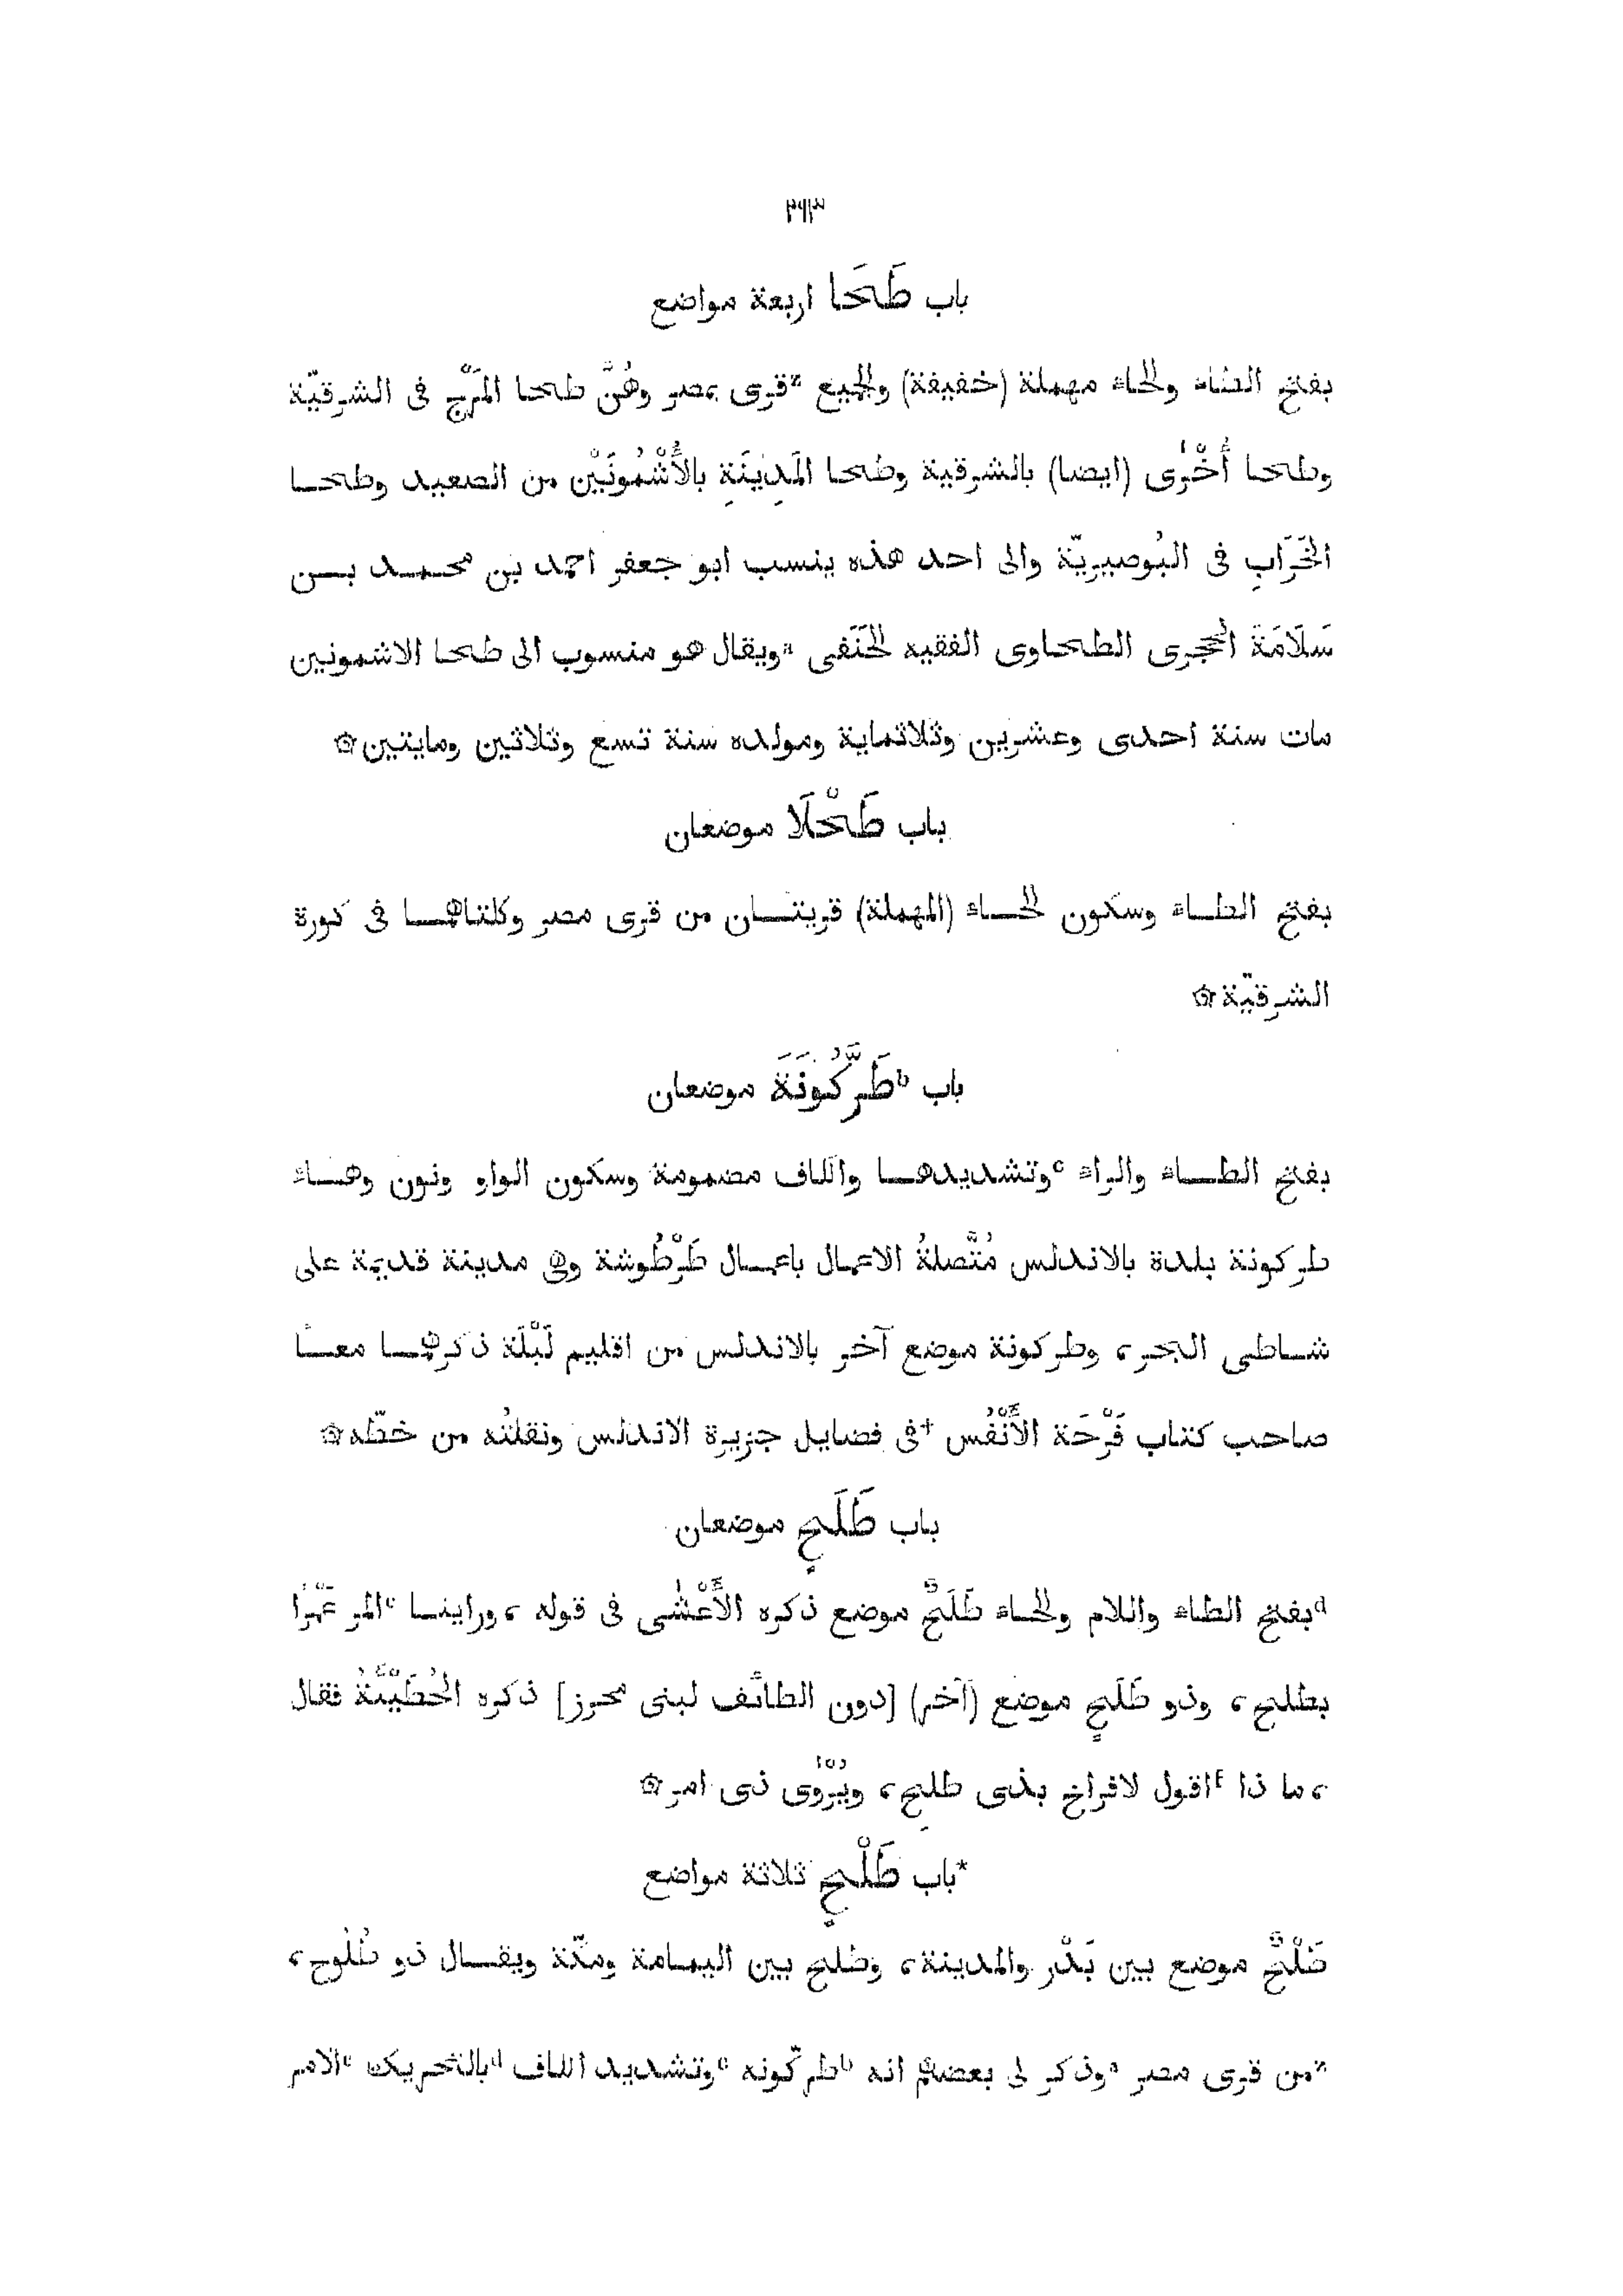 ٢٩٣
باب طَحَا اربعة مواضع
بفتح الطاء والحاء مهملة (خفيفة) والجميع ᶻقرى بمصر وهُنَّ طحا المَرْج فى الشرقيّة
وطحا أُخْرٰى (ايضا) بالشرقية وطحا المَدِينَةِ بالأُشْمُونَيْن من الصعيد وطحا
الخَرَابِ فى البُوصيريّة والى احد هذه ينسب ابو جعفر احمد بن محمد بن
سَلَامَةَ الحجرى الطحاوى الفقيه الحَنَفى ᵃويقال هو منسوب الى طحا الاشمونين
مات سنة احدى وعشرين وثلاثماية ومولده سنة تسع وثلاثين ومايتين ۞
باب طَحْلَا موضعان
بفتح الطاء وسكون الحاء (المهملة) قريتان من قرى مصر وكلتاهما فى كورة
الشرقيّة ۞
باب ᵇطَرَّكُونَةَ موضعان
بفتح الطاء والراء ᶜوتشديدها والكاف مضمومة وسكون الواو ونون وهاء
طركونة بلدة بالاندلس مُتَّصلةُ الاعمال باعمال طَرْطُوشة وهى مدينة قديمة على
شاطى البحر، وطركونة موضع آخر بالاندلس من اقليم لَبْلَة ذكرهما معا
صاحب كتاب فَرْحَة الأَنْفُس †فى فضايل جزيرة الاندلس ونقلتُه من خطّه ۞
باب طَلَحٍ موضعان
ᵈبفتح الطاء واللام والحاء طَلَحٌ موضع ذكره الأَعْشٰى فى قوله، وراينا ᵉالمر عَمْرًا
بطلح، وذو طَلَحٍ موضع (آخر) [دون الطائف لبنى محرز] ذكره الحُطَيْئَةُ فقال
، ما ذا ᶠاقول لافراخ بذى طلح، ويُرْوٰى ذى امر ۞
*باب طَلْحٍ ثلاثة مواضع
طَلْحٌ موضع بين بَدْر والمدينة، وطلح بين اليمامة ومكّة ويقال ذو طُلُوح،
ᶻمن قرى مصر ᵃوذكر لى بعضهم انه ᵇطركّونه ᶜوتشديد الكاف ᵈبالتحريك ᵉالامر